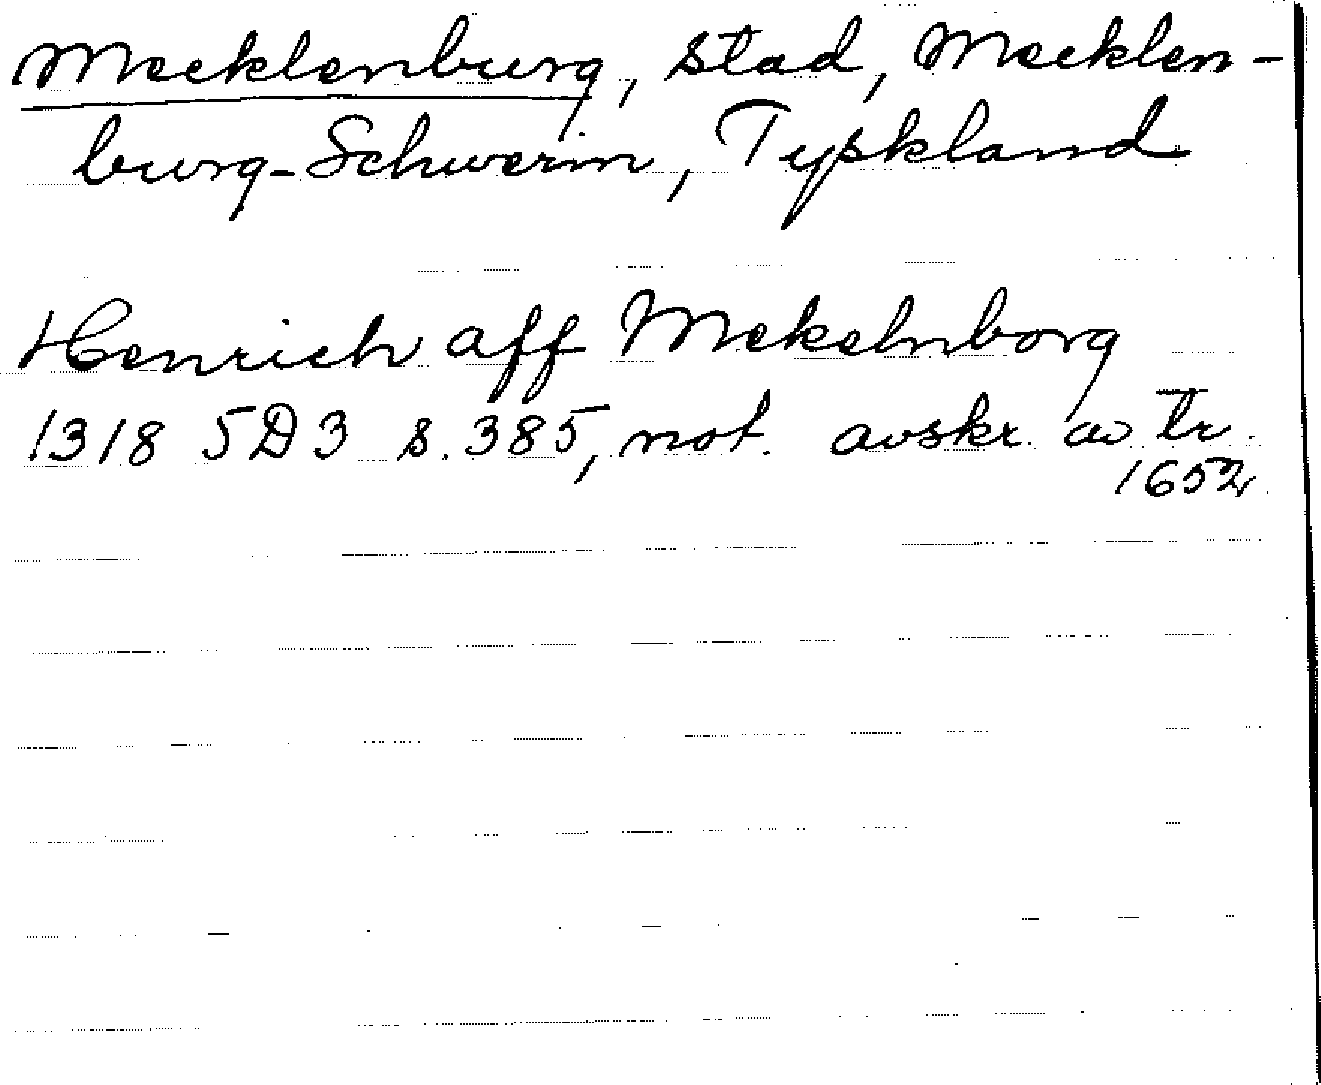 Mecklenburg, stad, Mecklen-
burg-Schwerin, Tyskland
Henrich aff Mekelnborg
1318 5D3 s. 385, not. avskr. av tr.
1652.